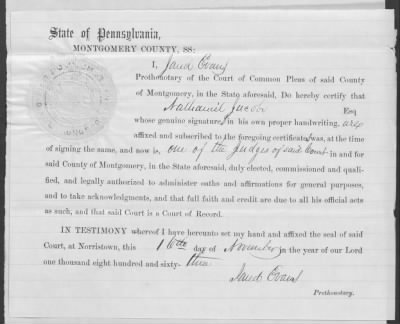 State of Pennsylvania,
MONTGOMERY COUNTY, SS:
I, Evans
Prothonotary of the Court of Common Pleas of said County
of Montgomery, in the State aforesaid, Do hereby certify that
Nathaniel Jacobs Esq
whose genuine signatures in his own proper handwriting, are
affixed and subscribed to the foregoing certificates was, at the time
of signing the same, and now is, one of the Judges of said Court in and for
said County of Montgomery, in the State aforesaid, duly elected, commissioned and quali-
fied, and legally authorized to administer oaths and affirmations for general purposes,
and to take acknowledgments, and that full faith and credit are due to all his official acts
as such, and that said Court is a Court of Record.
IN TESTIMONY whereof I have hereunto set my hand and affixed the seal of said
Court, at Norristown, this 16th day of November in the year of our Lord
one thousand eight hundred and sixty-three
Evans
Prothonotary.